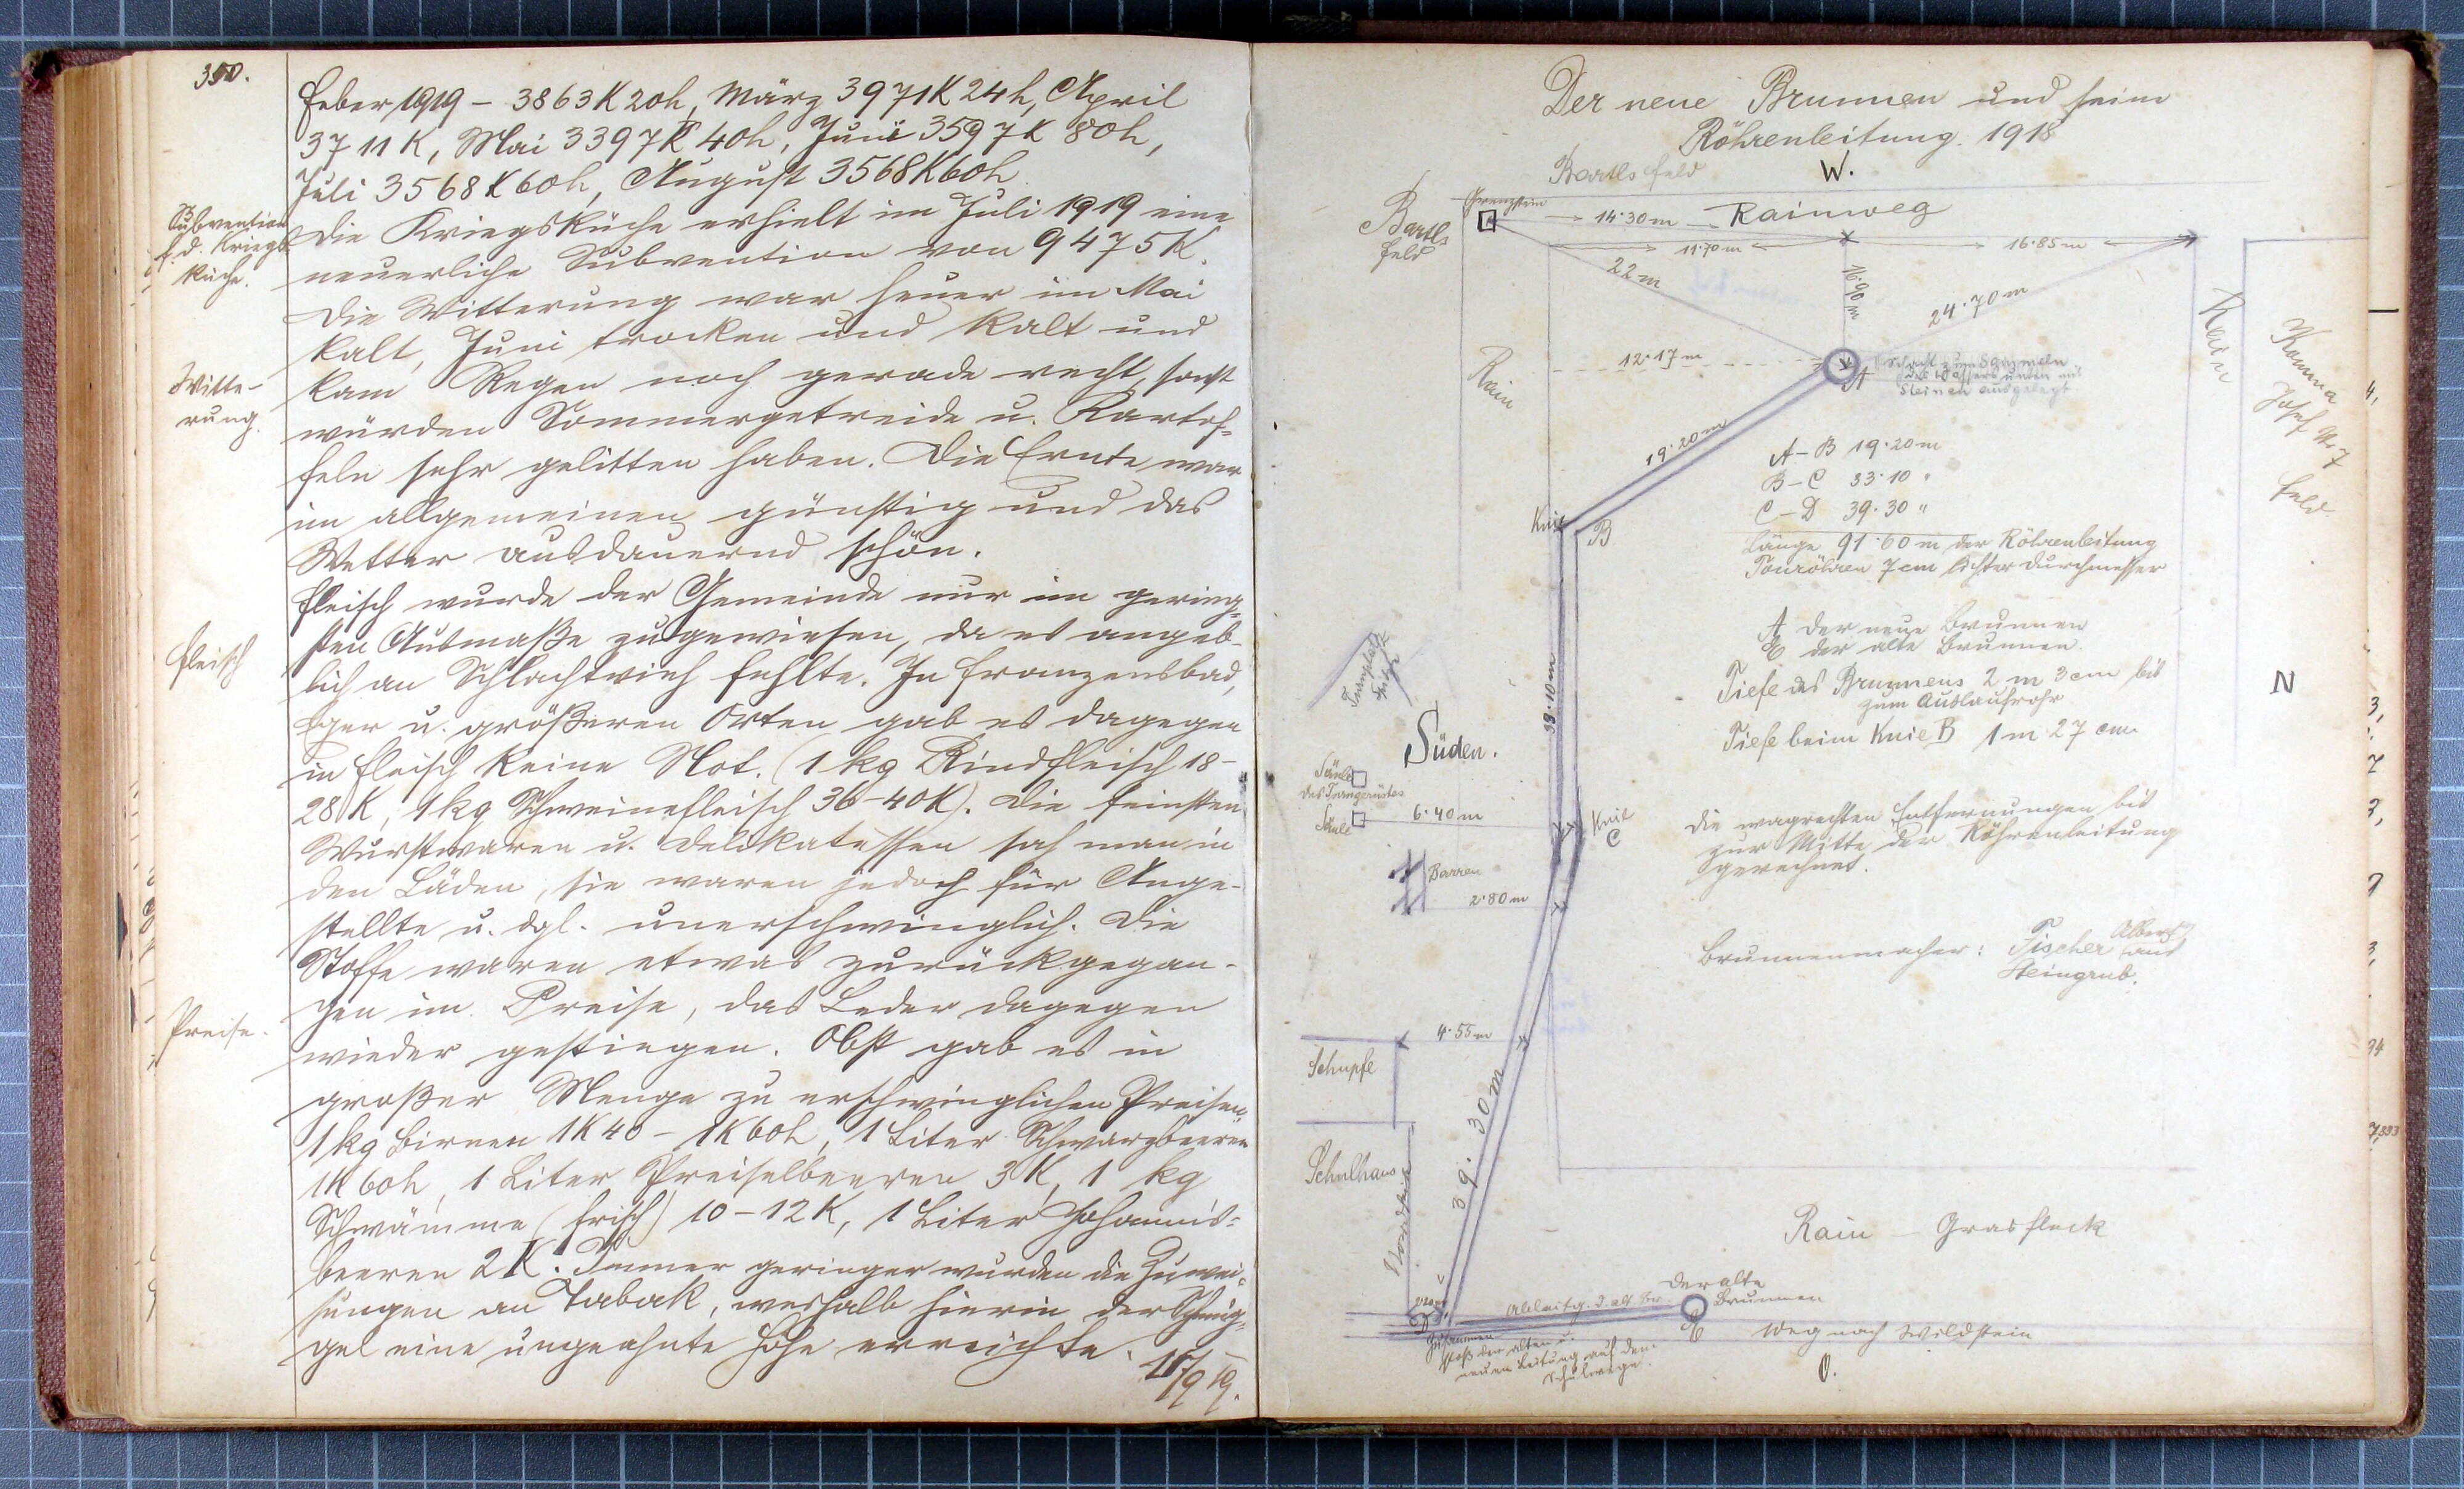 350.
Feber 1919 – 3863K 20h, März 3971K 24h, April
3711 K, Mai 3397K 40h, Juni 3597K 80h,
Juli 3568K 60h, August 3568K 60h
Subvention
f. d. Kriegs-
küche.
Die Kriegsküche erhielt im Juli 1919 eine
neuerliche Subvention von 9475K.
Die Witterung war heuer im Mai
kalt, Juni trocken und kalt und
Witte-
rung.
kam Regen noch gerade recht, sonst
würden Sommergetreide u. Kartof-
feln sehr gelitten haben. Die Ernte war
im allgemeinen günstig und das
Wetter ausdauernd schön.
Fleisch
Fleisch wurde der Gemeinde nur im gering-
sten Ausmaße zugewiesen, da es angeb-
lich an Schlachtvieh fehlte. In Franzensbad,
Eger u. größeren Orten gab es dagegen
in Fleisch keine Not. (1 kg Rindfleisch 18-
28 K, 1 kg Schweinefleisch 36-40K). Die feinsten
Wurstwaren u. Delikatessen sah man in
den Läden, sie waren jedoch für Ange-
stellte u. dgl. unerschwinglich. Die
Stoffe waren etwas zurückgegan-
Preise.
gen im Preise, das Leder dagegen
wieder gestiegen. Obst gab es in
großer Menge zu erschwinglichen Preisen,
1 kg Birnen 1K40 – 1K60h, 1 Liter Schwarzbeeren
1K 60h, 1 Liter Preiselbeeren 3K, 1 kg
Schwämme (frisch) 10-12K, 1 Liter Johannis-
beeren 2K. Immer geringer wurden die Zuwei-
sungen an Tabak, weshalb hierin der Schmug-
gel eine ungeahnte Höhe erreichte.
Der neue Brunnen und seine
Röhrenleitung. 1918
Bartls Feld
W.
Bartls
Feld
Grenzstein
14·30 m
Rainweg
11·70 m
16·85 m
22 m
16·90 m
24·70 m
Rain
Rain
Komma
Josef Nr. 7
Feld.
12·17 m
A
Schacht zum Sammeln
des Wassers unten mit
Steinen ausgelegt
19·20 m
A–B 19·20 m
B–C 33·10 "
C–D 39·30 "
Länge 91·60 m der Röhrenleitung
Tonröhren 7 cm lichter Durchmesser
Knie
B
A der neue Brunnen
E der alte Brunnen.
Tiefe des Brunnens 2 m 3 cm bis
zum Auslaufrohr
Tiefe beim Knie B 1 m 27 cm.
N
Turnplatz
33·10 m
Süden.
Säule
des Turngerüstes
Säule
6·40 m
Knie
C
Barren
2·80 m
Die wagrechten Entfernungen bis
zur Mitte der Röhrenleitung
gerechnet.
Brunnenmacher: Fischer Albert aus
Steingrub.
4·55 m
Schupfe
39·30 m
Schulhaus
Rain – Grasfleck
Der alte
Brunnen
Ableitg. d. alt. Br.
D
E
Weg nach Wildstein
Zusammen-
stoß der alten u.
neuen Leitung auf dem
Schulwege.
O.